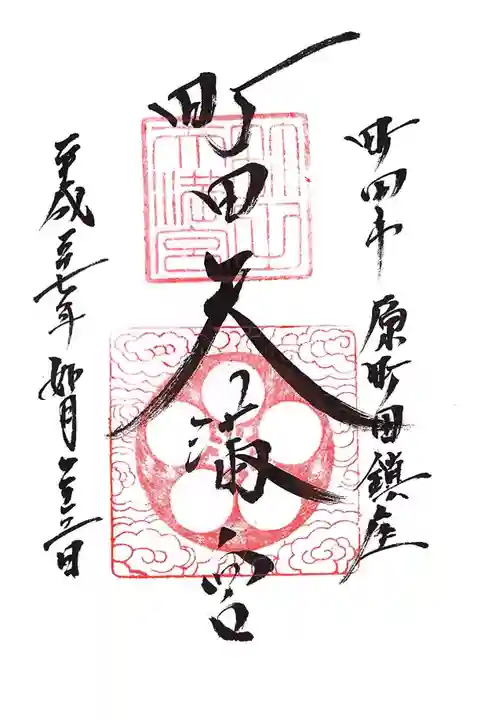 町田市 原町田鎮座
町田天満宮
平成 七年 如月 日
天満宮